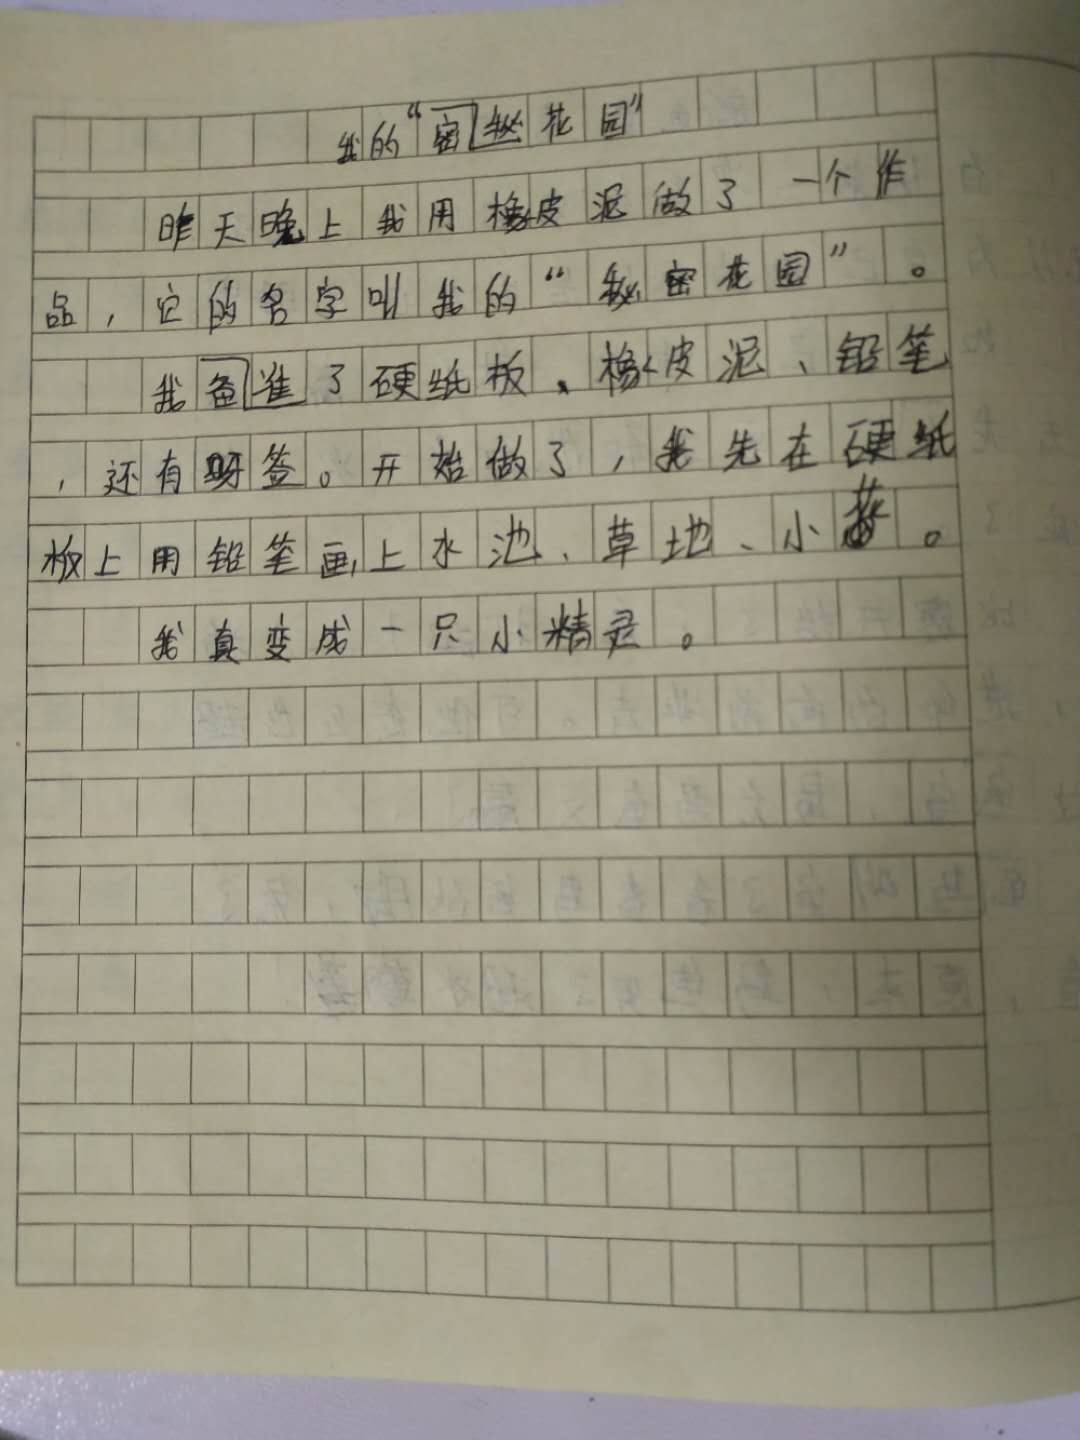 我的“密秘花园”
昨天晚上我用橡皮泥做了一个作
品，它的名字叫我的“秘密花园”。
我备准了硬纸板、橡皮泥、铅笔
，还有呀签。开始做了，我先在硬纸
板上用铅笔画上水池、草地、小花。
我真变成一只小精灵。